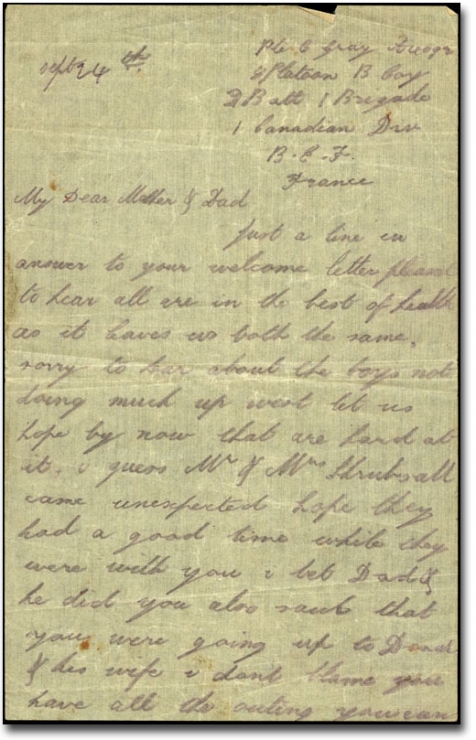 Sept 24th.
Pte C Gray
8 Platoon B Coy
2 Batt 1 Brigade
1 Canadian Div
B.E.F.
France
My Dear Mother & Dad
Just a line in
answer to your welcome letter pleased
to hear all are in the best of health
as it leaves us both the same,
sorry to hear about the boys not
doing much up west let us
hope by now that are hard at
it. i guess Mr & Mrs Shrubsall
came unexpected hope they
had a good time while they
were with you i bet Dad &
he did you also said that
you were going up to
& his wife i dont blame you
have all the outing you can